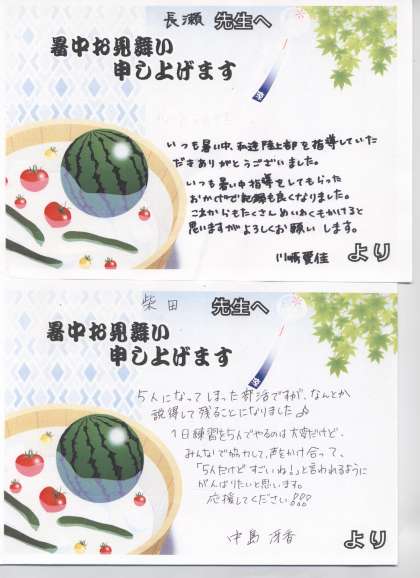 長瀬 先生へ
暑中お見舞い
申し上げます
いつも暑い中、私達陸上部を指導していた
だきありがとうございました。
いつも暑い中指導をしてもらった
おかげで記録も良くなりました。
これからもたくさんめいわくもかけると
思いますがよろしくお願いします。
川崎愛佳 より
柴田 先生へ
暑中お見舞い
申し上げます
5人になってしまった部活ですが、なんとか
説得して残ることになりました♪
1日練習を5人でやるのは大変だけど、
みんなで協力して、声をかけ合って、
「5人だけどすごいね!」と言われるように
がんばりたいと思います。
応援してください!!!
中島 香 より